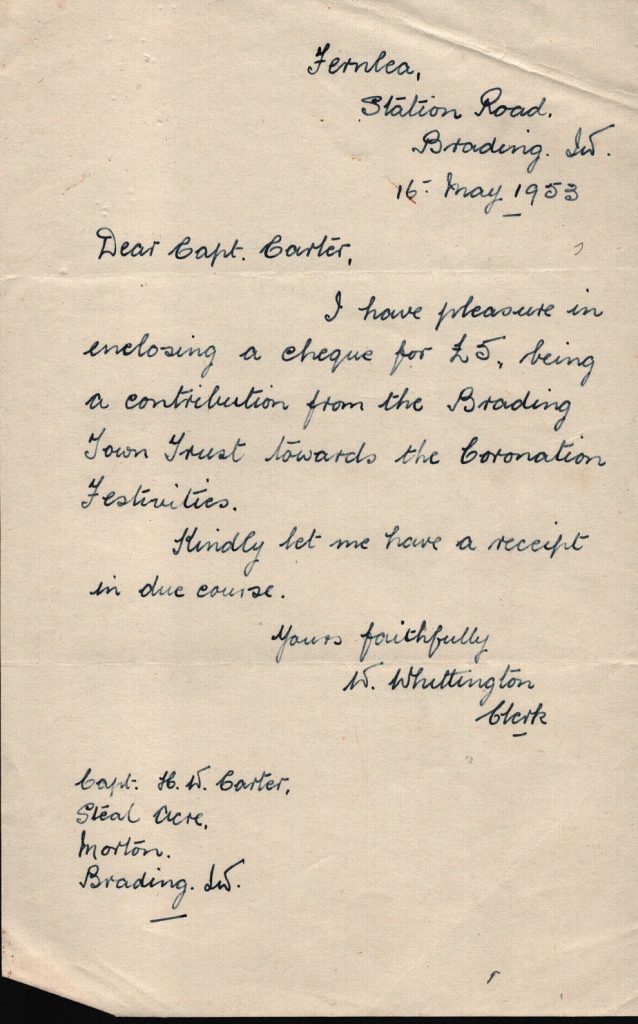 Fernlea,
Station Road.
Brading. IW.
16- May 1953
Dear Capt. Carter,
I have pleasure in
enclosing a cheque for £5, being
a contribution from the Brading
Town Trust towards the Coronation
Festivities.
Kindly let me have a receipt
in due course.
Yours faithfully
W. Whittington
Clerk
Capt. H. W. Carter,
Steal Acre,
Morton.
Brading. IW.